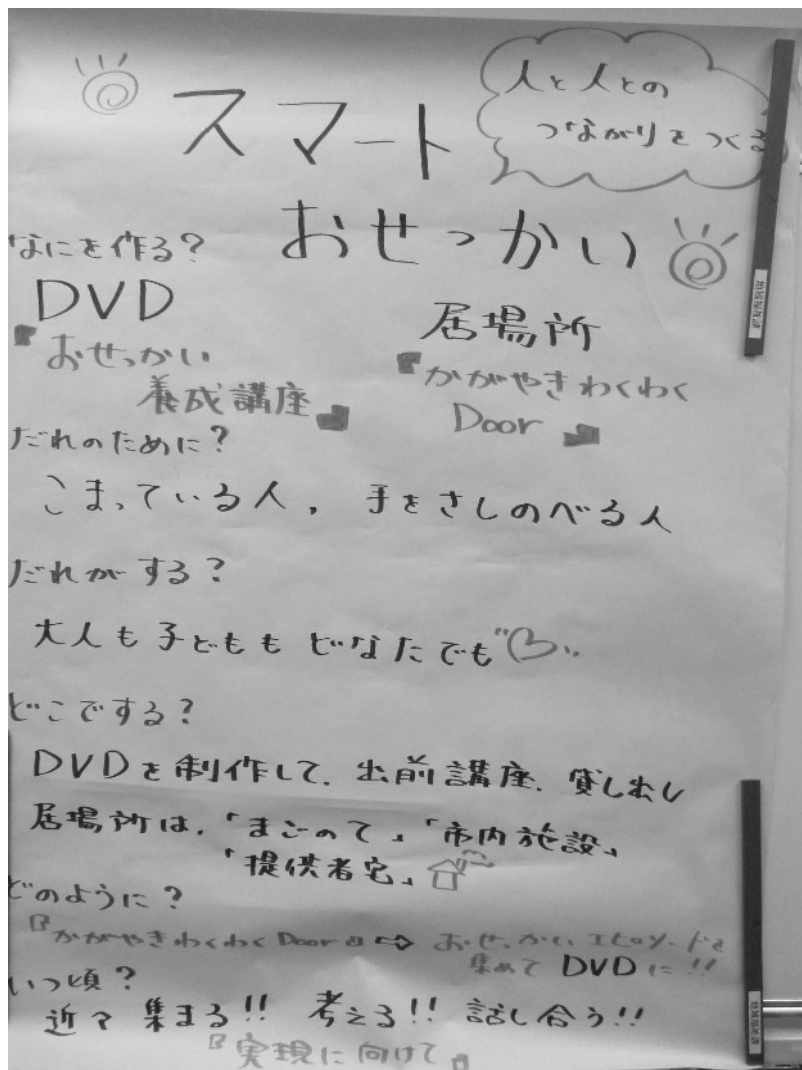 人と人との
つながりをつくる
スマート
おせっかい
なにを作る?
DVD
『おせっかい
養成講座』
居場所
『かがやきわくわく
Door』
だれのために?
こまっている人, 手をさしのべる人
だれがする?
大人も子どもも どなたでも
どこでする?
DVDを制作して, 出前講座, 貸し出し
居場所は, 「まごのて」「市内施設」
「提供者宅」
どのように?
『かがやきわくわくDoor』⇨ おせっかいエピソードを
集めて DVDに!!
いつ頃?
近々 集まる!! 考える!! 話し合う!!
『実現に向けて』